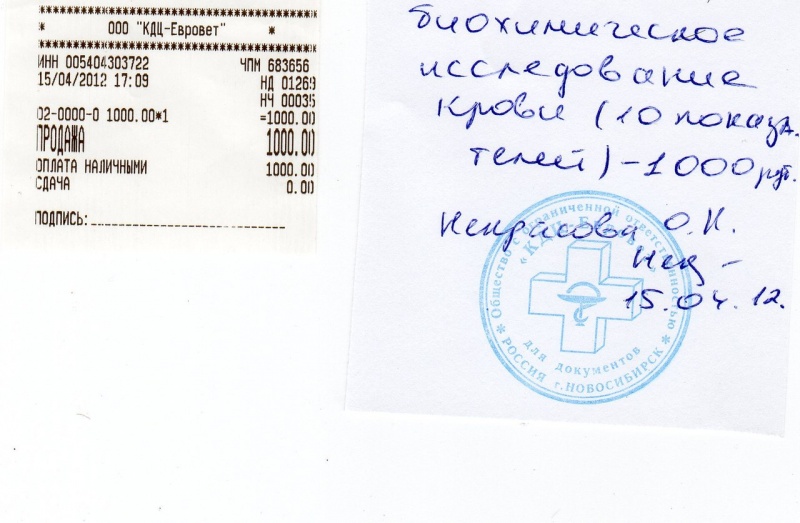 ************************************
* ООО "КДЦ-Евровет" *
************************************
ИНН 005404303722 ЧПМ 683656
15/04/2012 17:09 НД 01269
НЧ 00035
02-0000-0 1000.00*1 =1000.00
ПРОДАЖА 1000.00
ОПЛАТА НАЛИЧНЫМИ 1000.00
СДАЧА 0.00
ПОДПИСЬ:
биохимическое
исследование
крови (10 показа
телей) – 1000 руб.
Некрасова О.Н.
Нек –
15.04.12.
Общество с ограниченной ответственностью
"КДЦ-Евровет"
для документов
* РОССИЯ г.НОВОСИБИРСК *